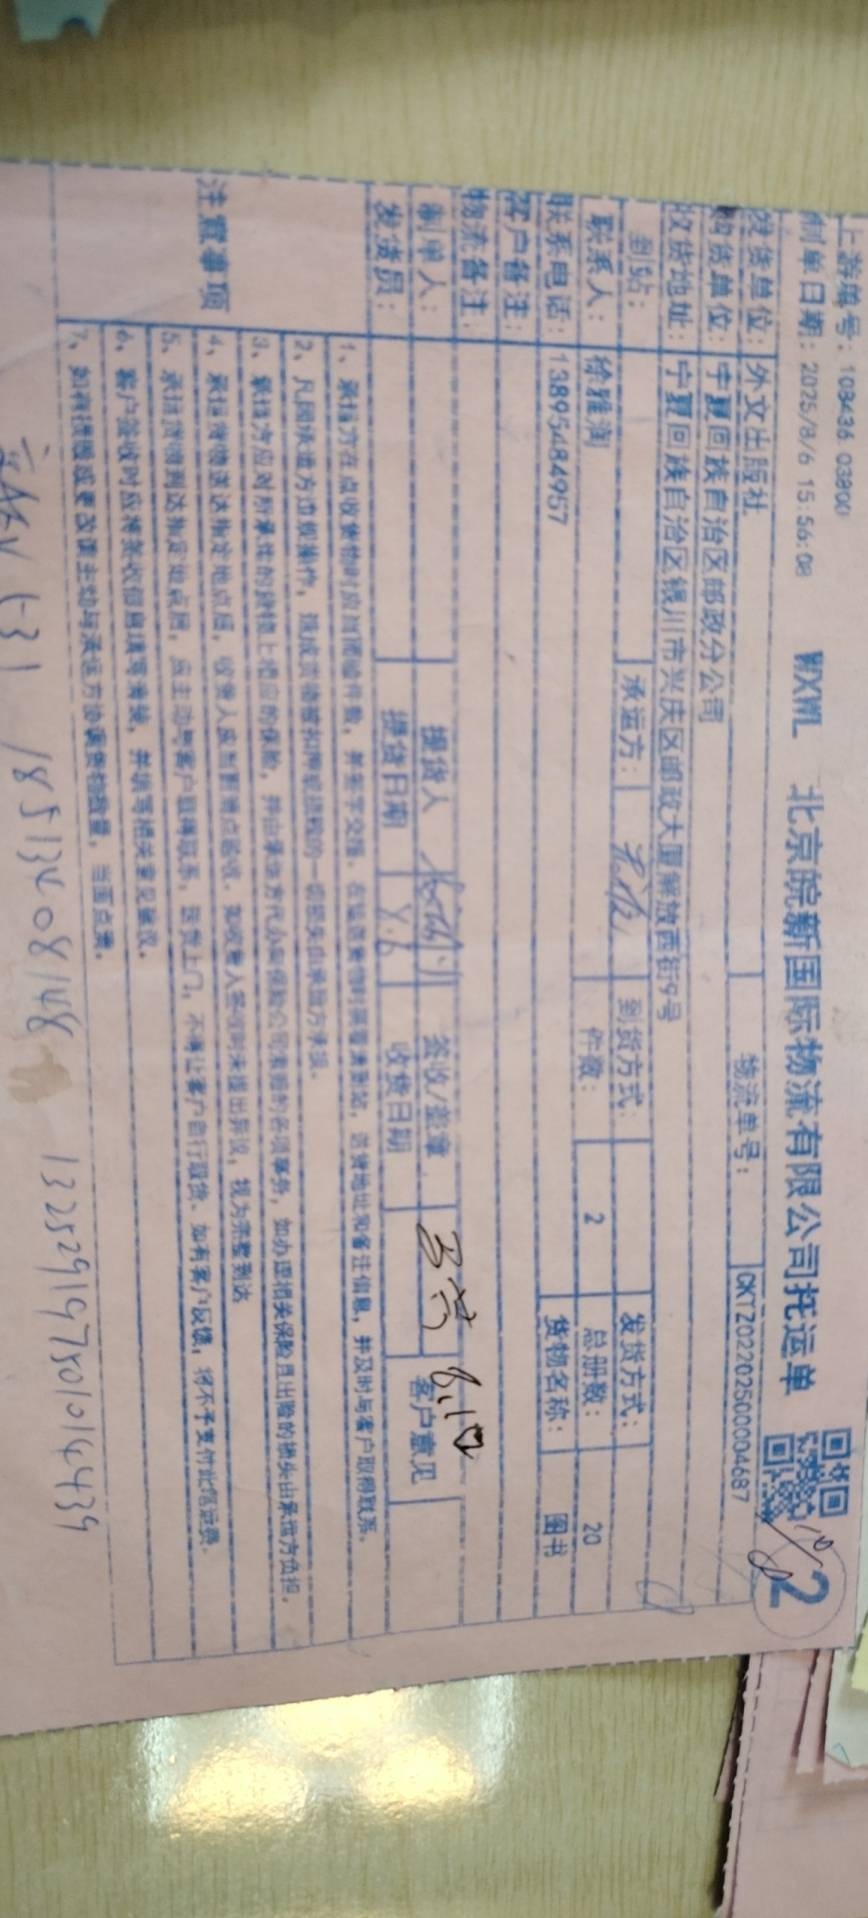 上游编号：108436 03800
制单日期：2025/8/6 15:56:08 WXWL 北京皖新国际物流有限公司托运单 2
发货单位：外文出版社 物流单号：CKTZ02202500004687
购货单位：宁夏回族自治区邮政分公司
收货地址：宁夏回族自治区银川市兴庆区邮政大厦解放西街9号
到站： 承运方： 到货方式： 发货方式：
联系人：徐雅润 件数：2 总册数：20
联系电话：13895484957 货物名称：图书
客户备注：
物流备注：
制单人： 提货人 签收/盖章 客户意见
发货员： 提货日期 8.6 收货日期
注意事项
1、承运方在点收货物时应当面验件数，并签字交接，在运送货物时需看清到站，送货地址和备注信息，并及时与客户取得联系。
2、凡因承运方违规操作，造成货物被扣押或损毁的一切损失由承运方承担。
3、承运方应对所承运的货物上相应的保险，并由承运方代办向保险公司索赔的各项事务，如办理相关保险且出险的损失由承运方负担。
4、承运货物送达指定地点后，收货人应当面清点验收，如收货人签收时未提出异议，视为完整到达
5、承运货物到达指定地点后，应主动与客户取得联系，送货上门，不得让客户自行取货。如有客户反馈，将不予支付此笔运费。
6、客户签收时应将签收信息填写清楚，并填写相关意见建议。
7、如有损毁或更改请主动与承运方协调货物数量，当面点清。
18513408148 132529197501014439